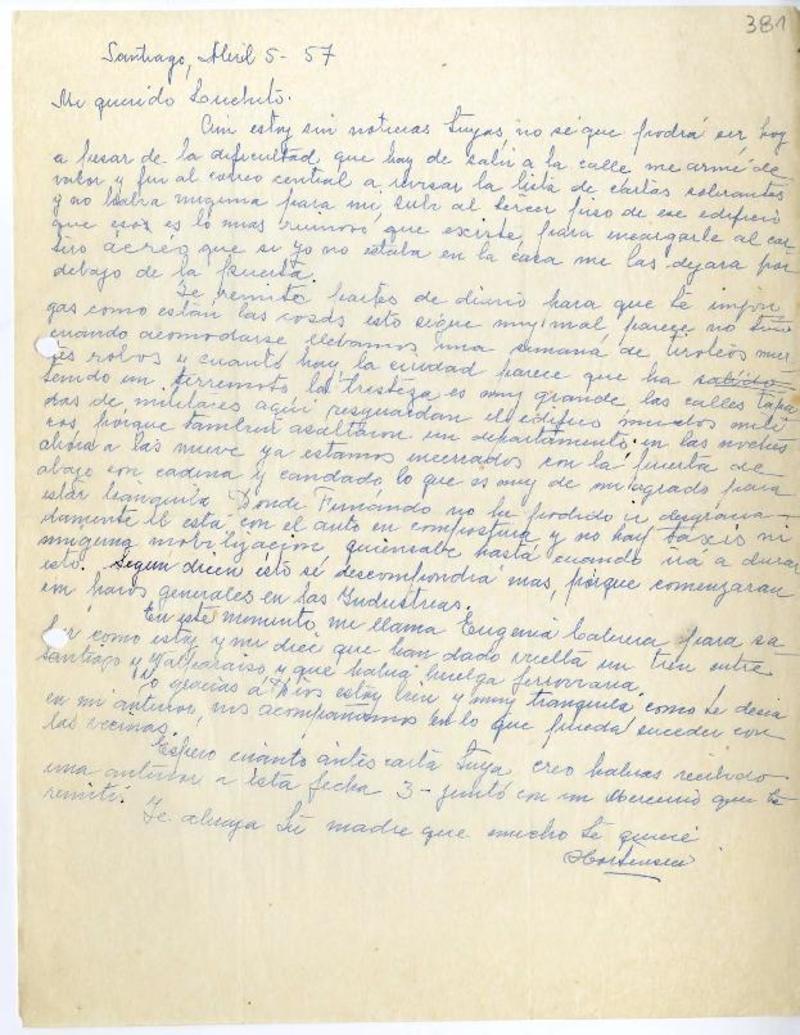 381
Santiago, Abril 5 - 57
Mi querido Luchito.
Aún estoy sin noticias tuyas no sé que podrá ser, hoy
a pesar de la dificultad que hay de salir a la calle me armé de
valor y fui al correo central a revisar la lista de cartas sobrantes
y no había ninguna para mi, subí al tercer piso de ese edificio
que eso es lo mas ruinoso que existe, para encargarle al car-
tero aéreo que si yo no estaba en la casa me las dejara por
debajo de la puerta.
Te remito partes de diario para que te impon
gas como están las cosas esto sigue muy mal, parece no
cuando acomodarse llebamos una semana de tiroteos muer
tes robos y cuanto hay, la ciudad parece que ha sabido
tenido un terremoto la tristeza es muy grande las calles tapa
das de militares aquí resguardan el edificio muchos mili
cos, porque tambien asaltaron un departamento. en las noches
ahora a las nueve ya estamos encerrados con la puerta de
abajo con cadena y candado, lo que es muy de mi agrado para
estar tranquila. Donde Fernando no he podido ir degracia-
damente él está con el auto en compostura y no hay taxis ni
ninguna mobilización, quiensabe hasta cuando irá a durar
esto. Segun dicen esto sé descompondrá mas, porque comenzaran
con paros generales en las Industrias.
En este momento me llama Eugenia Cabrera para sa
ber como estoy y me dice que han dado vuelta un tren entre
Santiago y Valparaiso y que habrá huelga ferroviaria.
Yo gracias a Dios estoy bien y muy tranquila como te decia
en mi anterior, nos acompañamos en lo que pueda suceder con
las vecinas.
Espero cuanto antes carta tuya, creo habras recibido
una anterior a esta fecha 3 - junto con un Mercurio que te
remití.
Te abraza tu madre que mucho te quiere
Hortensia